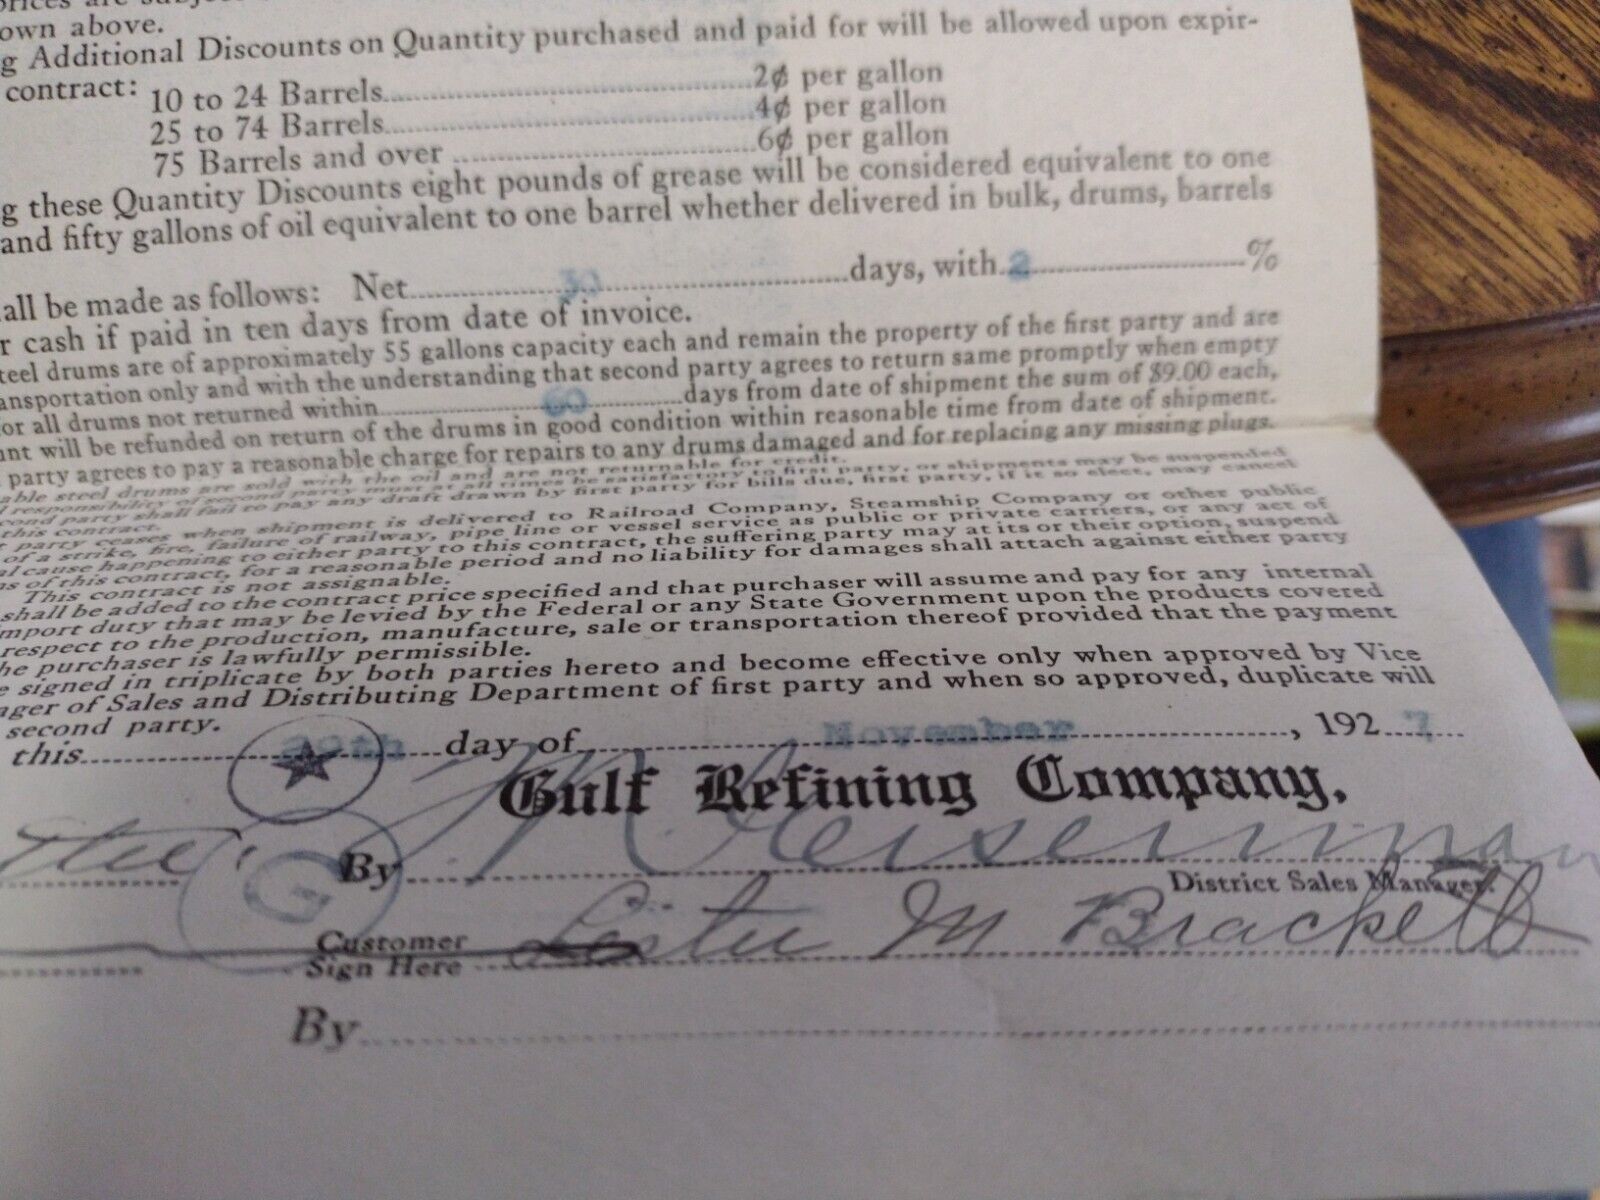 prices are subject
own above.
g Additional Discounts on Quantity purchased and paid for will be allowed upon expir-
contract:
10 to 24 Barrels 2¢ per gallon
25 to 74 Barrels 4¢ per gallon
75 Barrels and over 6¢ per gallon
g these Quantity Discounts eight pounds of grease will be considered equivalent to one
and fifty gallons of oil equivalent to one barrel whether delivered in bulk, drums, barrels
all be made as follows: Net 30 days, with 2 %
r cash if paid in ten days from date of invoice.
teel drums are of approximately 55 gallons capacity each and remain the property of the first party and are
ansportation only and with the understanding that second party agrees to return same promptly when empty
or all drums not returned within 60 days from date of shipment the sum of $9.00 each,
unt will be refunded on return of the drums in good condition within reasonable time from date of shipment.
party agrees to pay a reasonable charge for repairs to any drums damaged and for replacing any missing plugs.
able steel drums are sold with the oil and are not returnable for credit.
l responsibility of second party must at all times be satisfactory to first party, or shipments may be suspended
cond party shall fail to pay any draft drawn by first party for bills due, first party, if it so elect, may cancel
this contract.
t party ceases when shipment is delivered to Railroad Company, Steamship Company or other public
of a strike, fire, failure of railway, pipe line or vessel service as public or private carriers, or any act of
al cause happening to either party to this contract, the suffering party may at its or their option, suspend
ns of this contract, for a reasonable period and no liability for damages shall attach against either party
This contract is not assignable.
shall be added to the contract price specified and that purchaser will assume and pay for any internal
mport duty that may be levied by the Federal or any State Government upon the products covered
respect to the production, manufacture, sale or transportation thereof provided that the payment
he purchaser is lawfully permissible.
e signed in triplicate by both parties hereto and become effective only when approved by Vice
ager of Sales and Distributing Department of first party and when so approved, duplicate will
second party.
this day of November, 1927
Gulf Refining Company,
By
District Sales Manager.
Customer
Sign Here Lester M Brackett
By